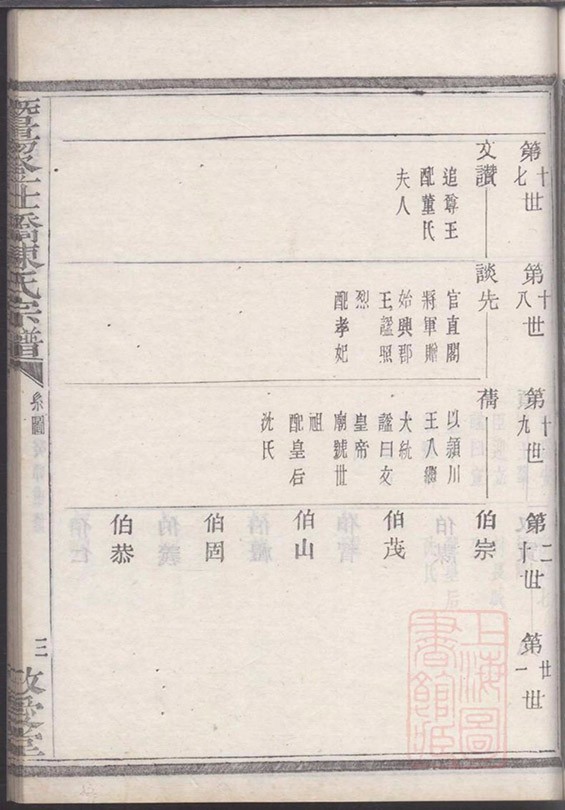 第十七世
文讚
追尊王
配董氏
夫人
第十八世
談先
官直閣
將軍贈
始興郡
王謚昭
烈
配孝妃
第十九世
蒨
以潁川
王入纘
大統
謚曰文
皇帝
廟號世
祖
配皇后
沈氏
第二十世
伯宗
伯茂
伯山
伯固
伯恭
第廿一世
暨陽
橋陳氏宗譜
系圖
三
上海圖書館藏